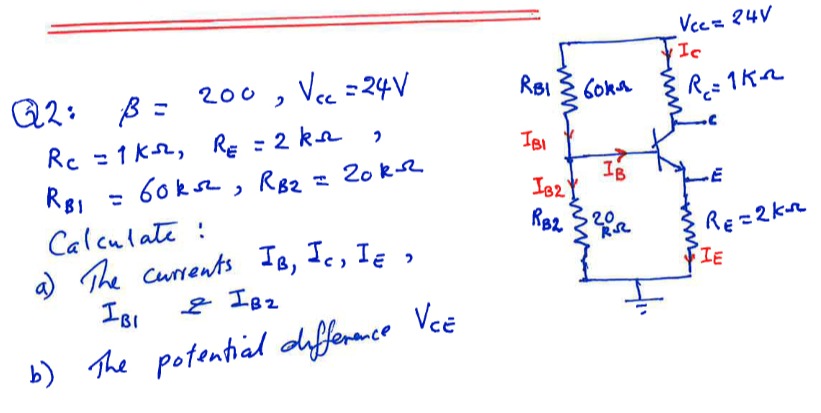 Q2: β = 200 , Vcc = 24V
Rc = 1KΩ, RE = 2kΩ ,
RB1 = 60kΩ , RB2 = 20kΩ
Calculate :
a) The currents IB, Ic, IE ,
IB1 & IB2
b) The potential difference VCE
Vcc = 24V
Ic
RB1 60kΩ
Rc = 1KΩ
C
IB1
IB
E
IB2
RB2 20 kΩ
RE = 2KΩ
IE